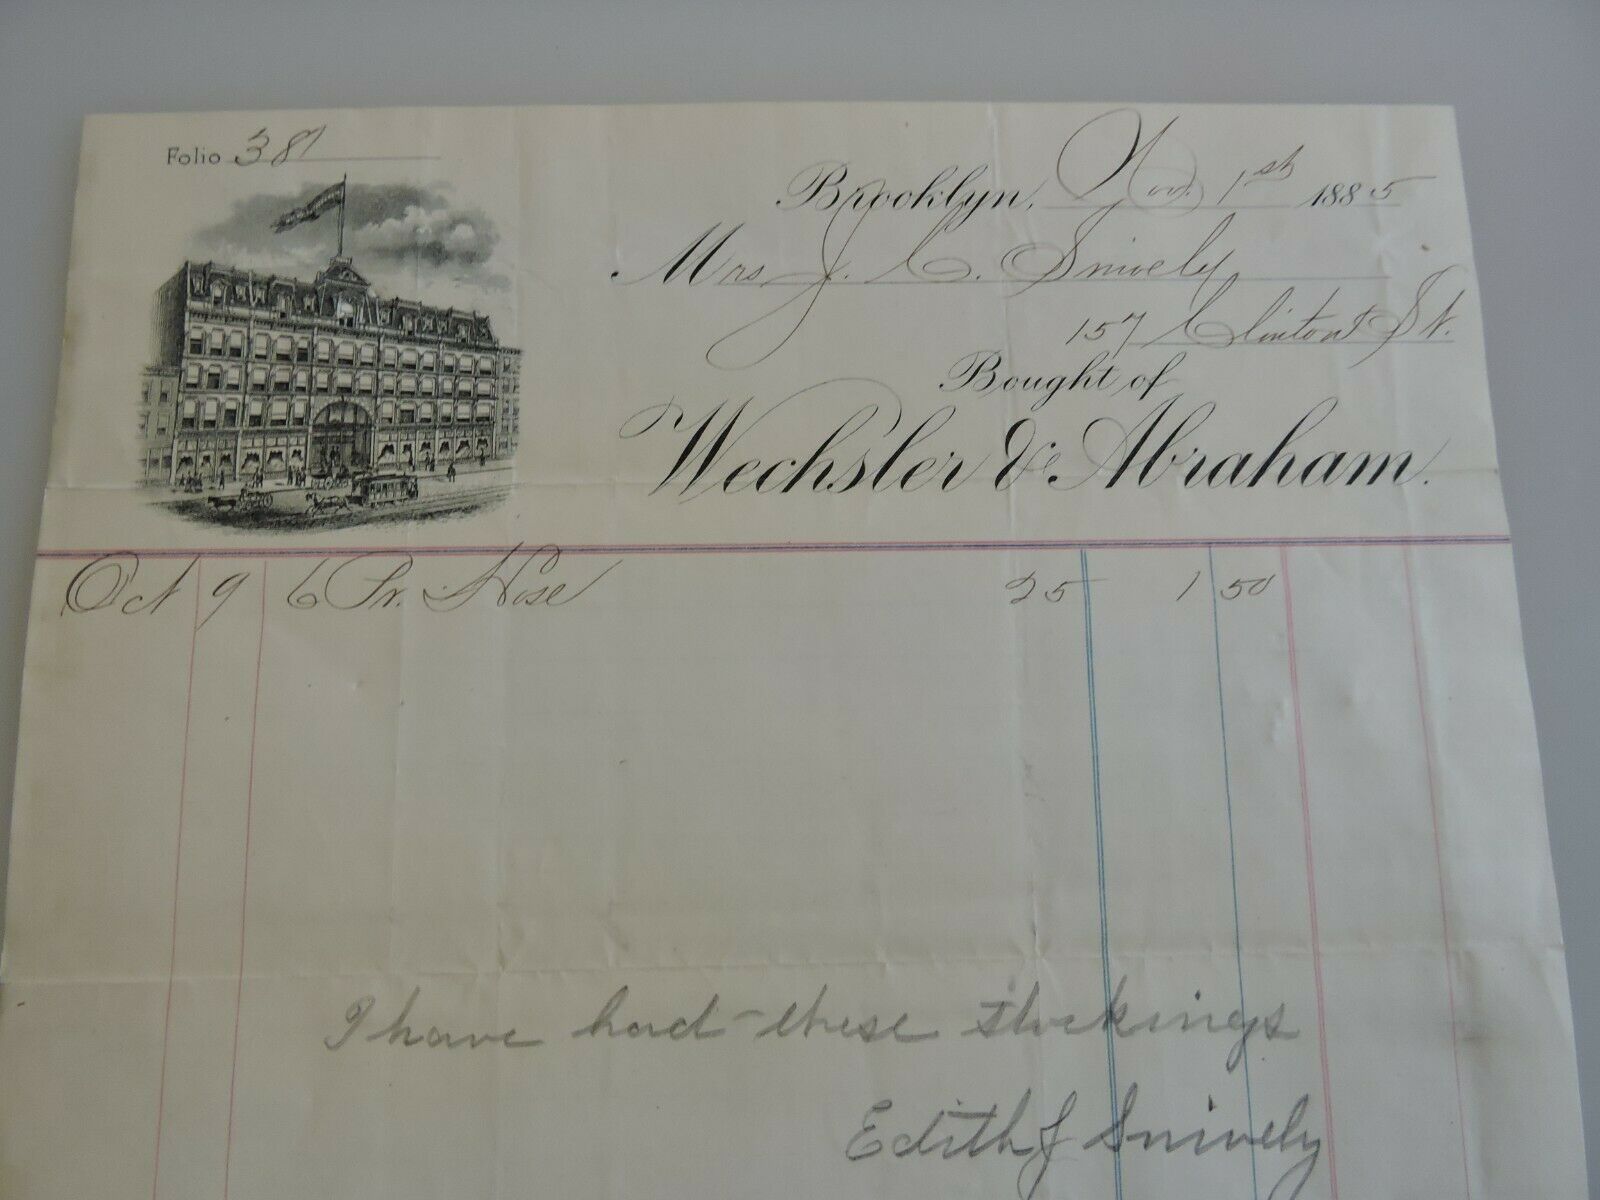 Folio 387
Brooklyn, Nov. 1st 1885
Mrs J. C. Snively
157 Clinton St.
Bought of
Wechsler & Abraham.
Oct 9 6 Pr. Hose 25 1 50
I have had these stockings
Edith J Snively